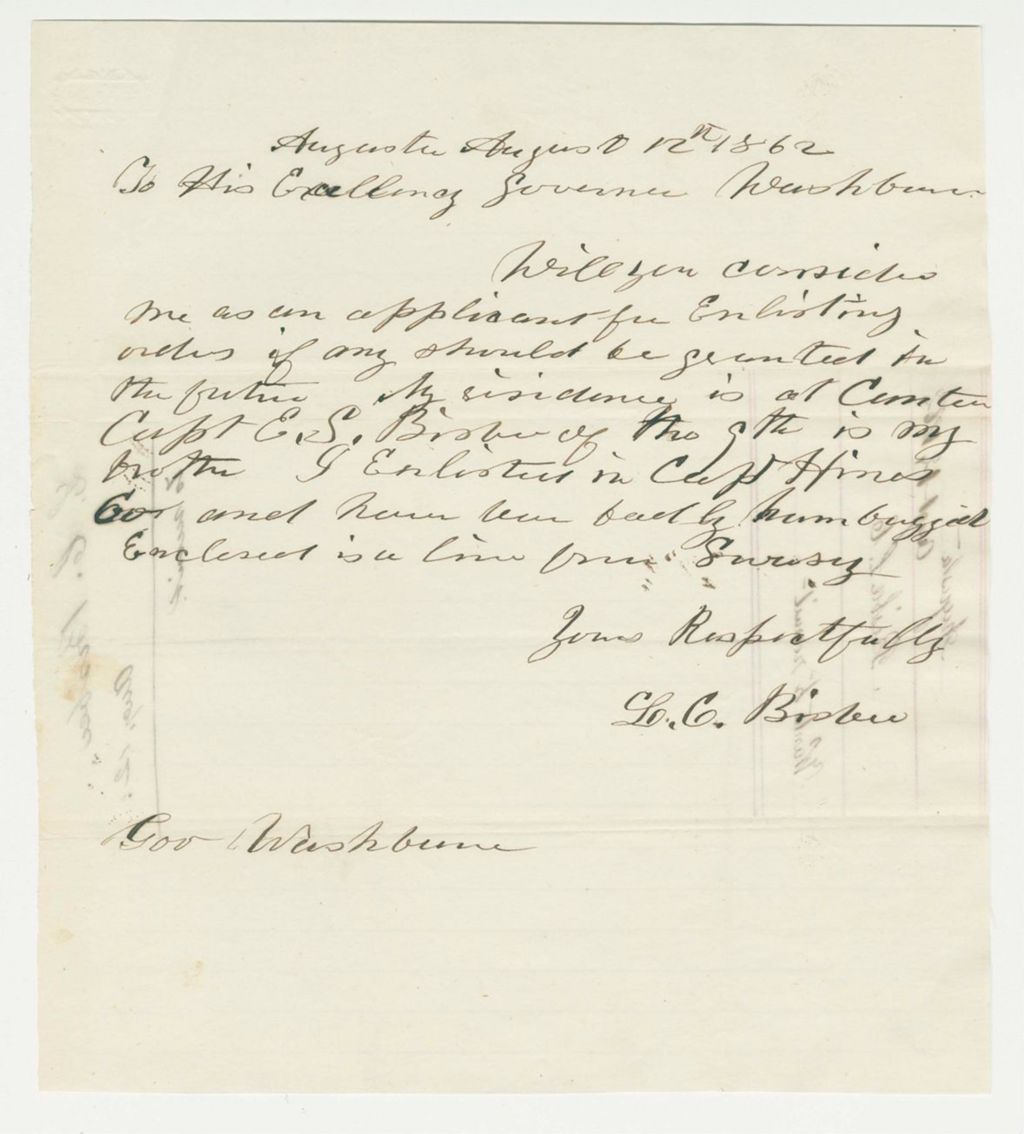 Augusta August 12th 1862
To His Excellency Governor Washburn
Will you consider
me as an applicant for Enlisting
orders if any should be granted in
the future My residence is at Canton
Capt E. S. Bisbee of the 9th is my
brother I Enlisted in Capt Hines
Co and have been badly humbugged
Enclosed is a line from
Yours Respectfully
L. C. Bisbee
Gov Washburne